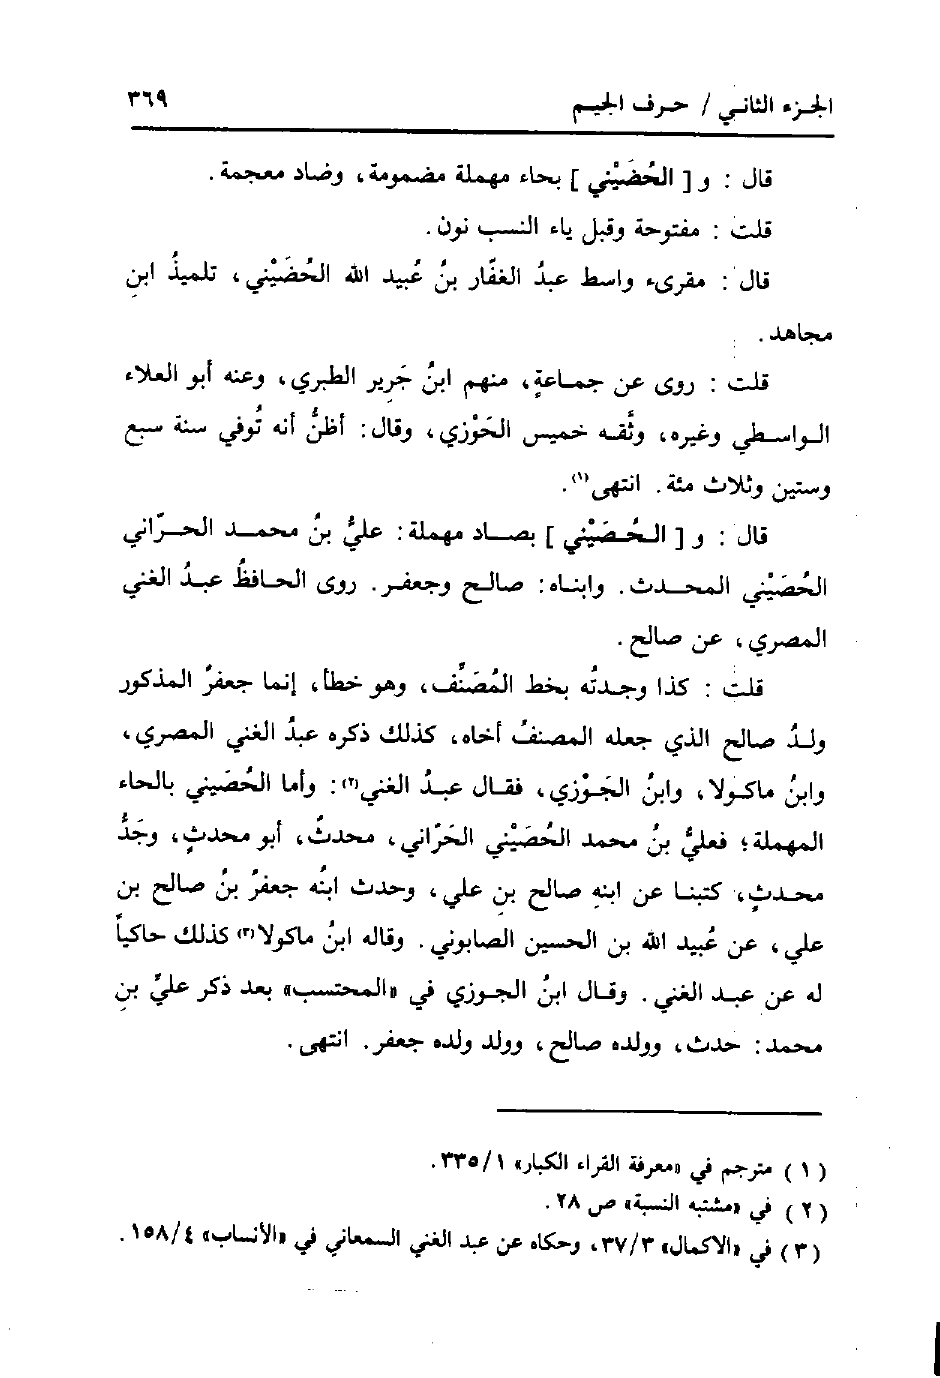 الجزء الثاني / حرف الجيم ٣٦٩
قال : و [ الحُضَيْني ] بحاء مهملة مضمومة، وضاد معجمة .
قلت : مفتوحة وقبل ياء النسب نون .
قال : مقرىء واسط عبدُ الغفّار بنُ عُبيد الله الحُضَيْني، تلميذُ ابنِ
مجاهد .
قلت : روى عن جماعةٍ، منهم ابنُ جَرِير الطبري، وعنه أبو العلاء
الواسطي وغيره، وثَّقه خميس الحَوْزي، وقال: أظنُّ أنه تُوفي سنة سبع
وستين وثلاث مئة. انتهى(١).
قال : و [ الحُصَيْني ] بصاد مهملة: عليُّ بنُ محمد الحرّاني
الحُصَيْني المحدث. وابناه: صالح وجعفر. روى الحافظُ عبدُ الغني
المصري، عن صالح .
قلت : كذا وجدتُه بخط المُصَنِّف، وهو خطأ، إنما جعفرٌ المذكور
ولدُ صالح الذي جعله المصنفُ أخاه، كذلك ذكره عبدُ الغني المصري،
وابنُ ماكولا، وابنُ الجَوْزي، فقال عبدُ الغني(٢): وأما الحُصَيني بالحاء
المهملة؛ فعليُّ بنُ محمد الحُصَيْني الحَرّاني، محدثٌ، أبو محدثٍ، وجَدُّ
محدثٍ، كتبنا عن ابنِهِ صالح بنِ علي، وحدث ابنُه جعفرُ بنُ صالح بن
علي، عن عُبيد الله بن الحسين الصابوني. وقاله ابنُ ماكولا(٣) كذلك حاكياً
له عن عبد الغني. وقال ابنُ الجوزي في «المحتسب» بعد ذكر عليِّ بنِ
محمد: حدث، وولده صالح، وولد ولده جعفر. انتهى .
(١) مترجم في «معرفة القراء الكبار» ٣٣٥/١.
(٢) في «مشتبه النسبة» ص ٢٨.
(٣) في «الاكمال» ٣٧/٣، وحكاه عن عبد الغني السمعاني في «الأنساب» ١٥٨/٤.